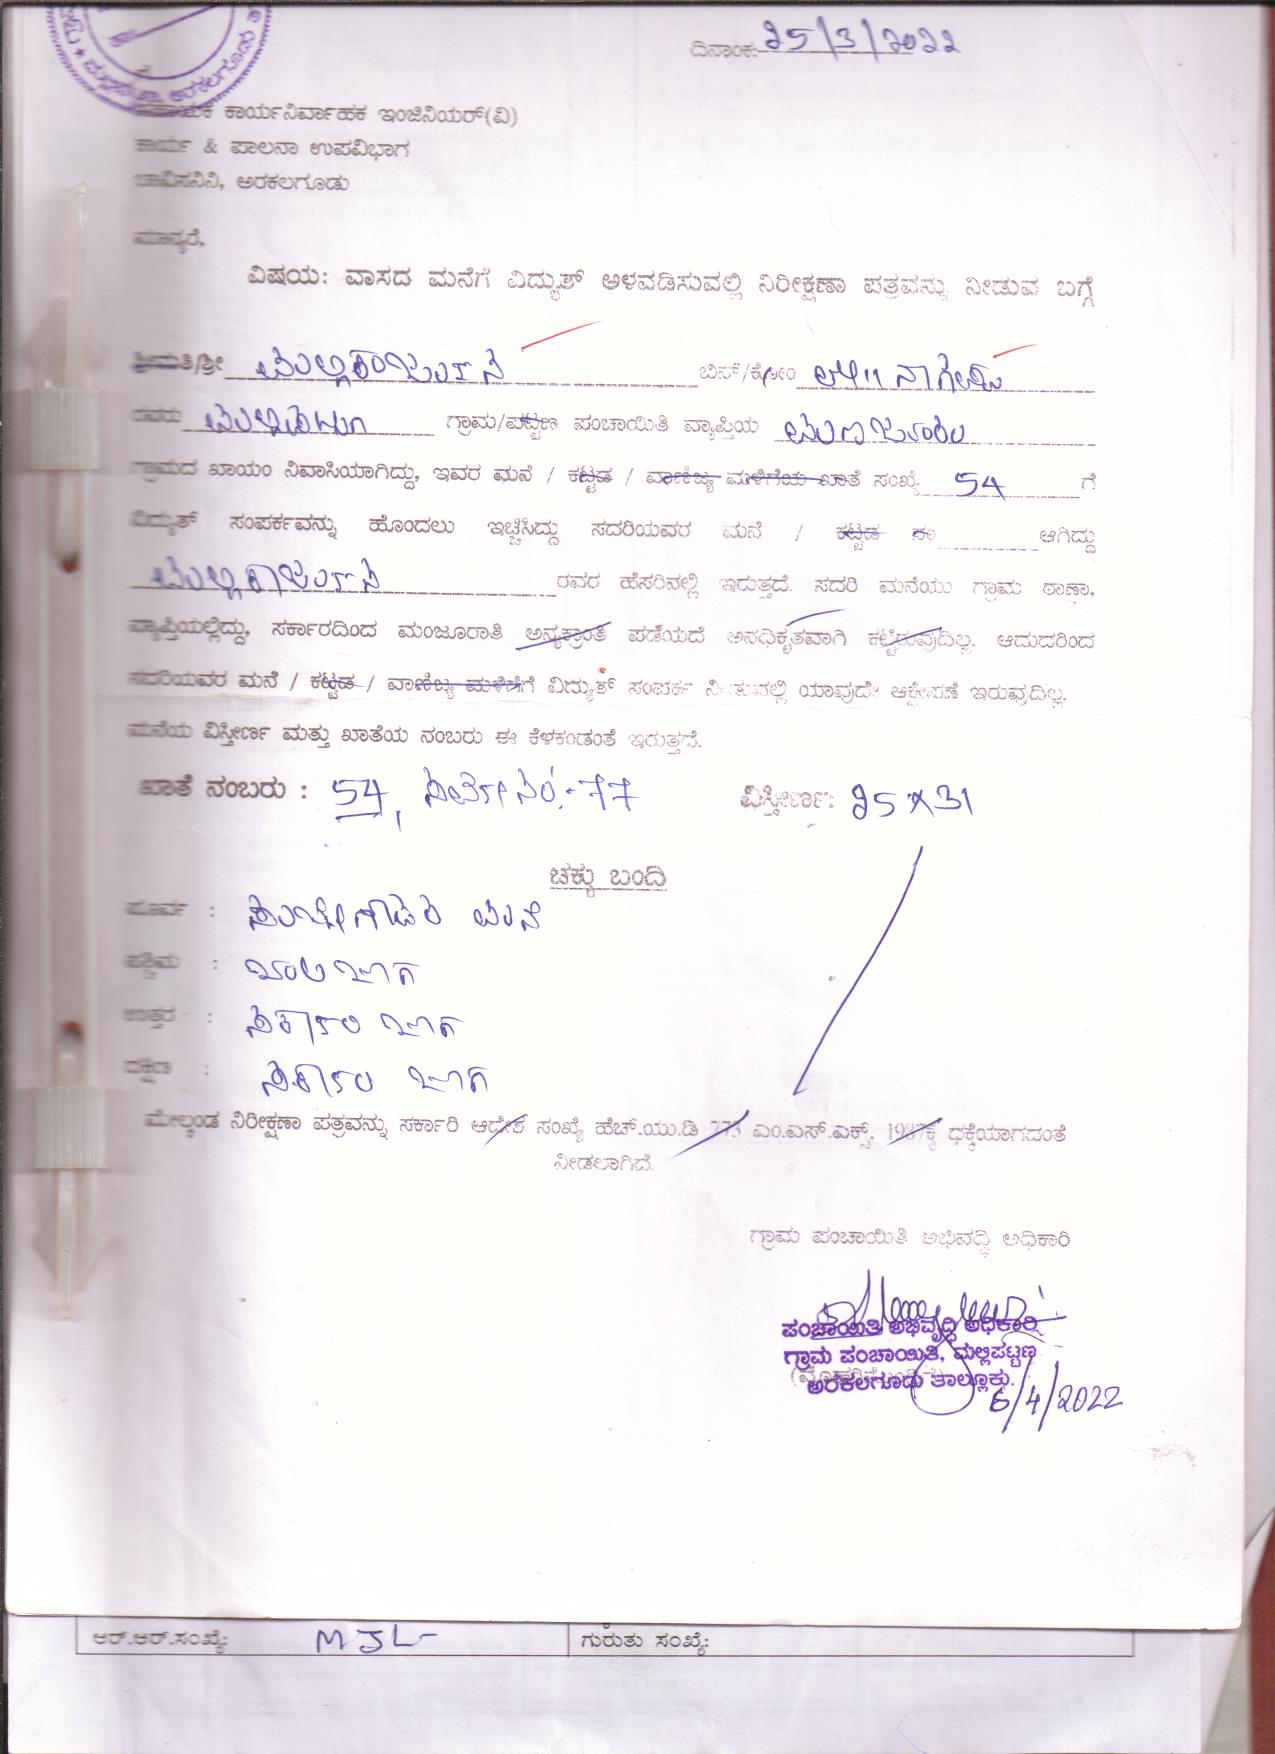 ದಿನಾಂಕ: 25/3/2022
ಕಾರ್ಯನಿರ್ವಾಹಕ ಇಂಜಿನಿಯರ್(ವಿ)
ಕಾರ್ಯ & ಪಾಲನಾ ಉಪವಿಭಾಗ
ಚಾವಿಸನಿನಿ, ಅರಕಲಗೂಡು
ಮಾನ್ಯರೆ,
ವಿಷಯ: ವಾಸದ ಮನೆಗೆ ವಿದ್ಯುತ್ ಅಳವಡಿಸುವಲ್ಲಿ ನಿರೀಕ್ಷಣಾ ಪತ್ರವನ್ನು ನೀಡುವ ಬಗ್ಗೆ
ಶ್ರೀಮತಿ/ಶ್ರೀ ಮಲ್ಲಿಕಾರ್ಜುನ ಬಿನ್/ಕೋಂ
ರವರು ಗ್ರಾಮ/ಪಟ್ಟಣ ಪಂಚಾಯಿತಿ ವ್ಯಾಪ್ತಿಯ
ಗ್ರಾಮದ ಖಾಯಂ ನಿವಾಸಿಯಾಗಿದ್ದು, ಇವರ ಮನೆ / ಕಟ್ಟಡ / ವಾಣಿಜ್ಯ ಮಳಿಗೆಯ ಖಾತೆ ಸಂಖ್ಯೆ 54 ಗೆ
ವಿದ್ಯುತ್ ಸಂಪರ್ಕವನ್ನು ಹೊಂದಲು ಇಚ್ಚಿಸಿದ್ದು ಸದರಿಯವರ ಮನೆ / ಕಟ್ಟಡ ಈ ಆಗಿದ್ದು
ಮಲ್ಲಿಕಾರ್ಜುನ ರವರ ಹೆಸರಿನಲ್ಲಿ ಇರುತ್ತದೆ. ಸದರಿ ಮನೆಯು ಗ್ರಾಮ ಠಾಣಾ,
ವ್ಯಾಪ್ತಿಯಲ್ಲಿದ್ದು, ಸರ್ಕಾರದಿಂದ ಮಂಜೂರಾತಿ ಅನ್ಯಕ್ರಾಂತ ಪಡೆಯದೆ ಅನಧಿಕೃತವಾಗಿ ಕಟ್ಟಿರುವುದಿಲ್ಲ. ಆದುದರಿಂದ
ಸದರಿಯವರ ಮನೆ / ಕಟ್ಟಡ / ವಾಣಿಜ್ಯ ಮಳಿಗೆಗೆ ವಿದ್ಯುತ್ ಸಂಪರ್ಕ ನೀಡುವಲ್ಲಿ ಯಾವುದೇ ಆಕ್ಷೇಪಣೆ ಇರುವುದಿಲ್ಲ.
ಮನೆಯ ವಿಸ್ತೀರ್ಣ ಮತ್ತು ಖಾತೆಯ ನಂಬರು ಈ ಕೆಳಕಂಡಂತೆ ಇರುತ್ತದೆ.
ಖಾತೆ ನಂಬರು : 54, ಸರ್ವೇ ನಂ:-77 ವಿಸ್ತೀರ್ಣ: 25 x 31
ಚಕ್ಕು ಬಂದಿ
ಪೂರ್ವ : ಮನೆ
ಪಶ್ಚಿಮ : ಖಾಲಿ ಜಾಗ
ಉತ್ತರ : ಸರ್ಕಾರಿ ಜಾಗ
ದಕ್ಷಿಣ : ಸರ್ಕಾರಿ ಜಾಗ
ಮೇಲ್ಕಂಡ ನಿರೀಕ್ಷಣಾ ಪತ್ರವನ್ನು ಸರ್ಕಾರಿ ಆದೇಶ ಸಂಖ್ಯೆ ಹೆಚ್.ಯು.ಡಿ 773 ಎಂ.ಎಸ್.ಎಕ್ಸ್. 1987ಕ್ಕೆ ಧಕ್ಕೆಯಾಗದಂತೆ
ನೀಡಲಾಗಿದೆ.
ಗ್ರಾಮ ಪಂಚಾಯಿತಿ ಅಭಿವದ್ಧಿ ಅಧಿಕಾರಿ
ಪಂಚಾಯಿತಿ ಅಭಿವೃದ್ಧಿ ಅಧಿಕಾರಿ
ಗ್ರಾಮ ಪಂಚಾಯಿತಿ, ಮಲ್ಲಿಪಟ್ಟಣ
ಅರಕಲಗೂಡು ತಾಲ್ಲೂಕು.
6/4/2022
ಆರ್.ಆರ್.ಸಂಖ್ಯೆ: MJL- ಗುರುತು ಸಂಖ್ಯೆ: